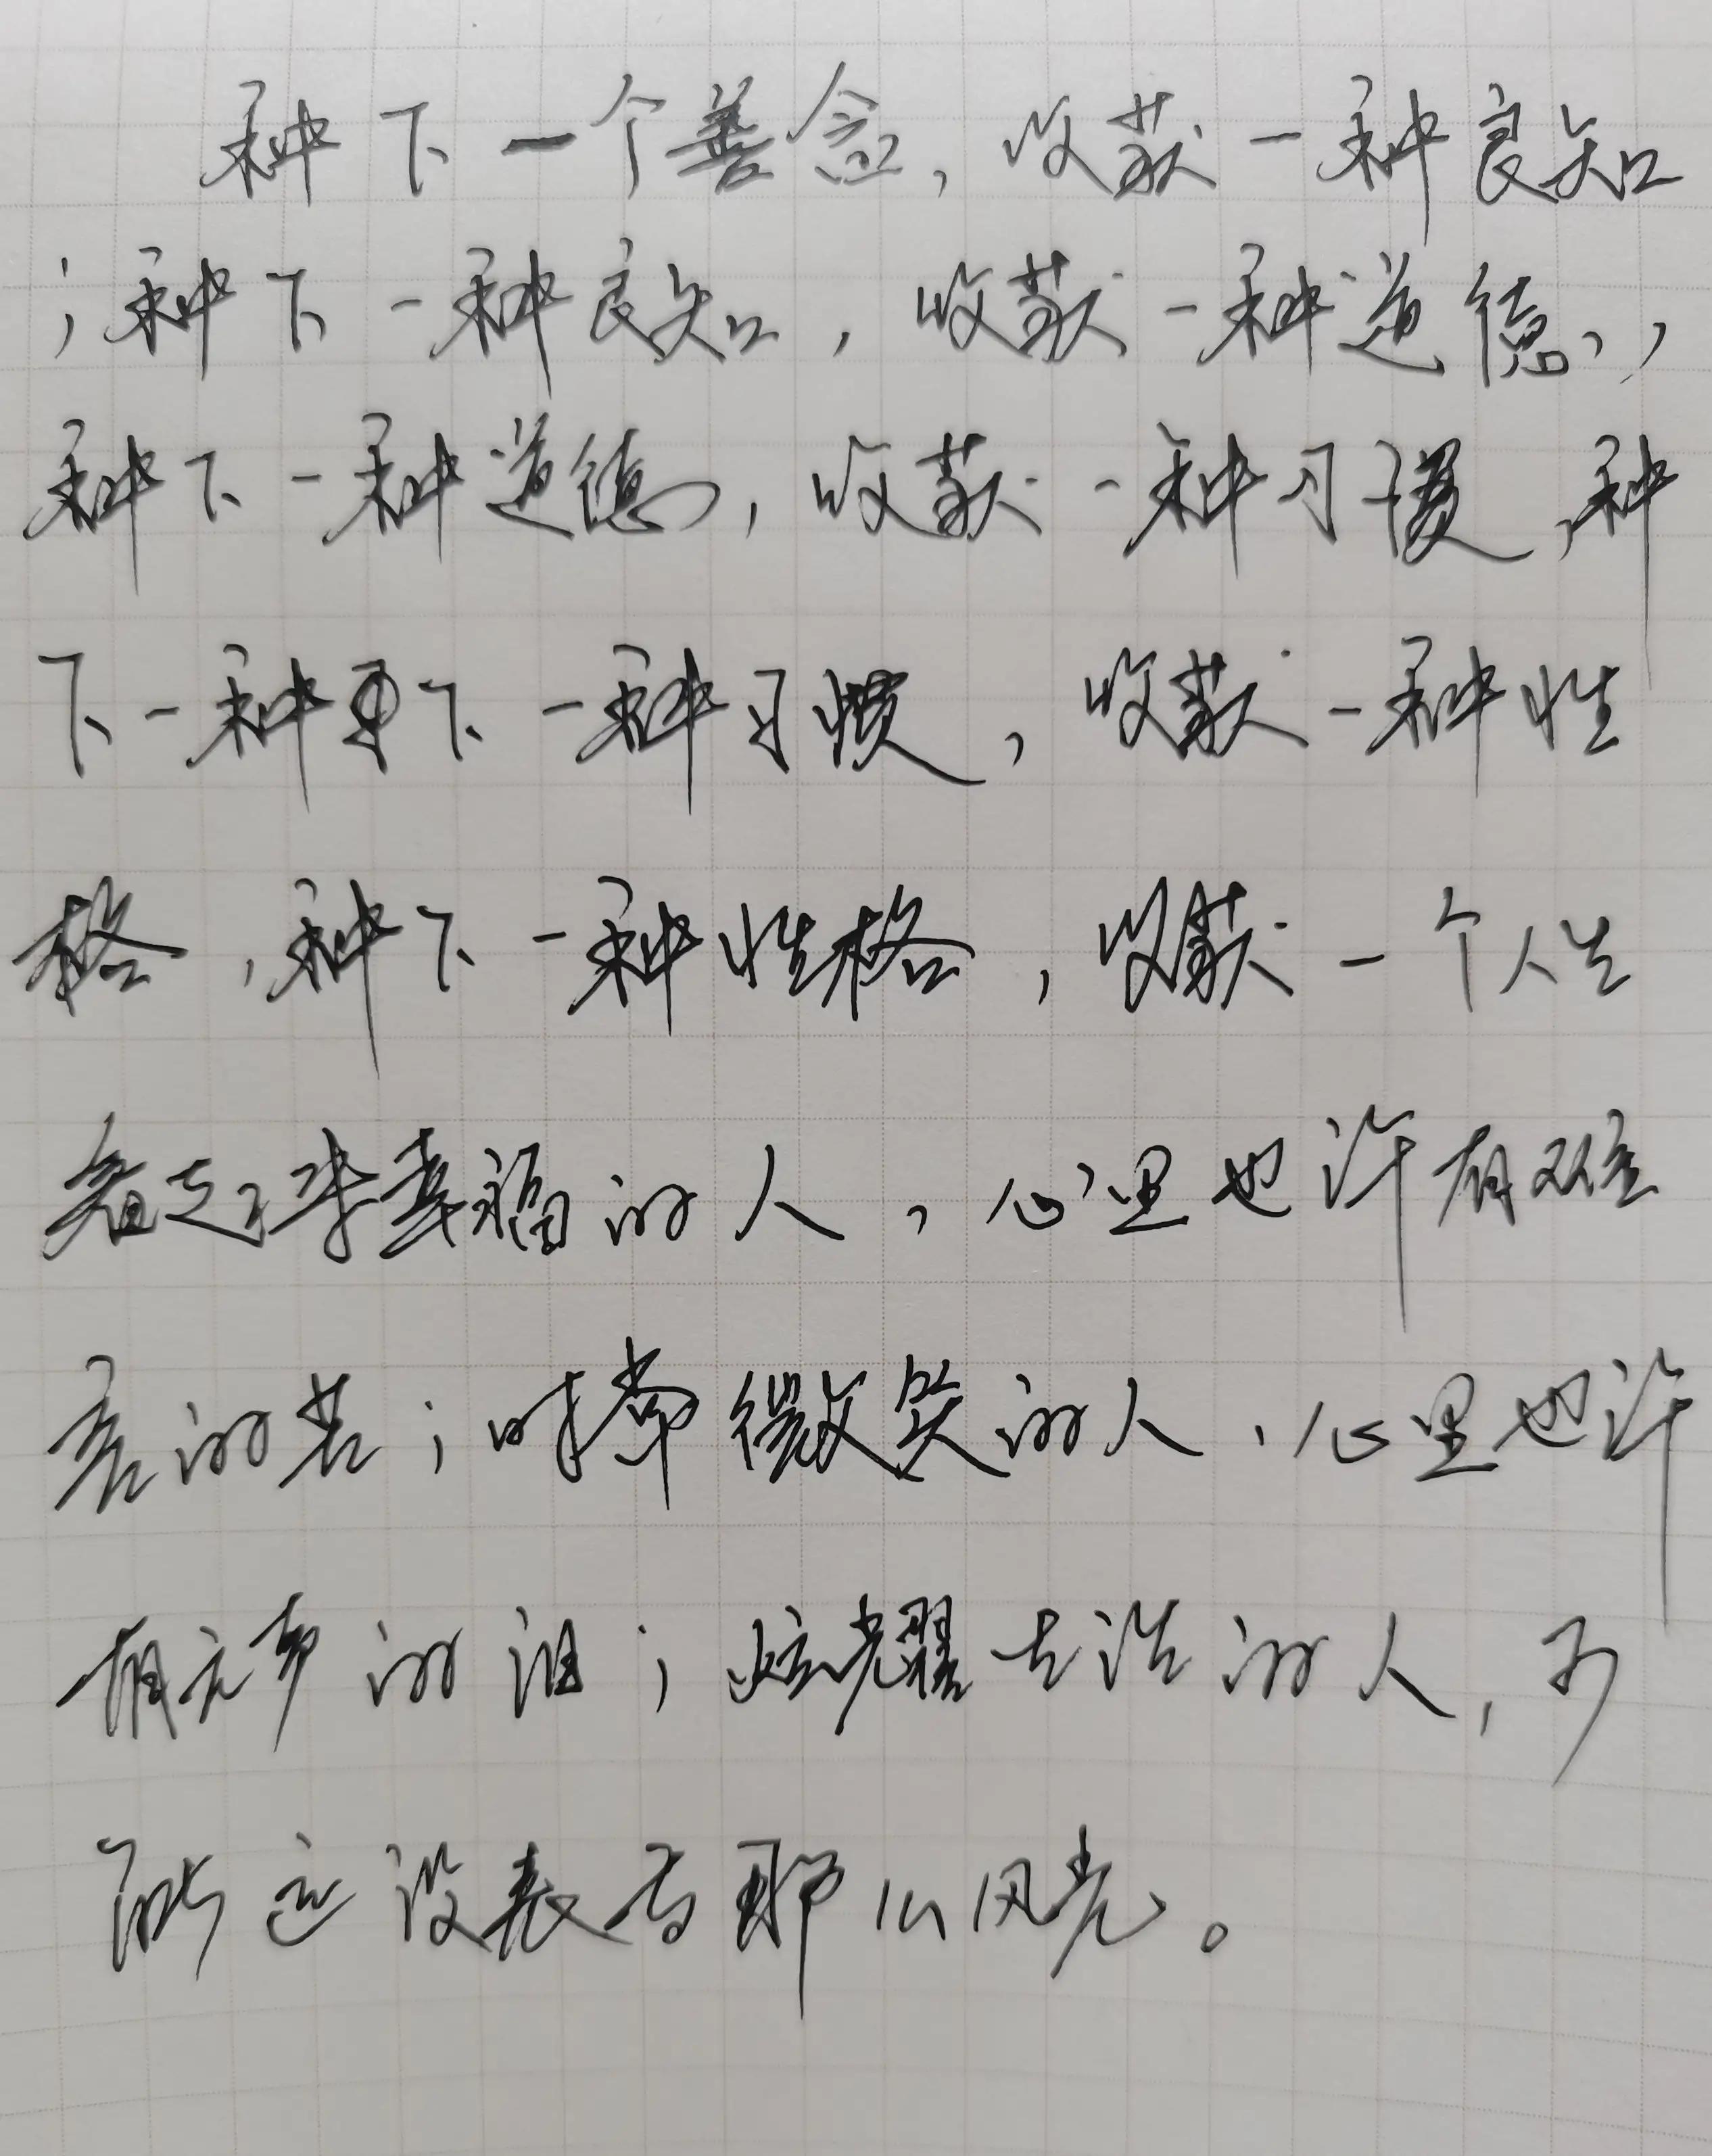 种下一个善念,收获一种良知
;种下一种良知,收获一种道德,
种下一种道德,收获一种习惯,种
下一种下一种习惯,收获一种性
格,种下一种性格,收获一个人生
看起来幸福的人,心里也许有难
言的苦;时常微笑的人,心里也许
有无声的泪;炫耀生活的人,可
能远没表面那么风光。